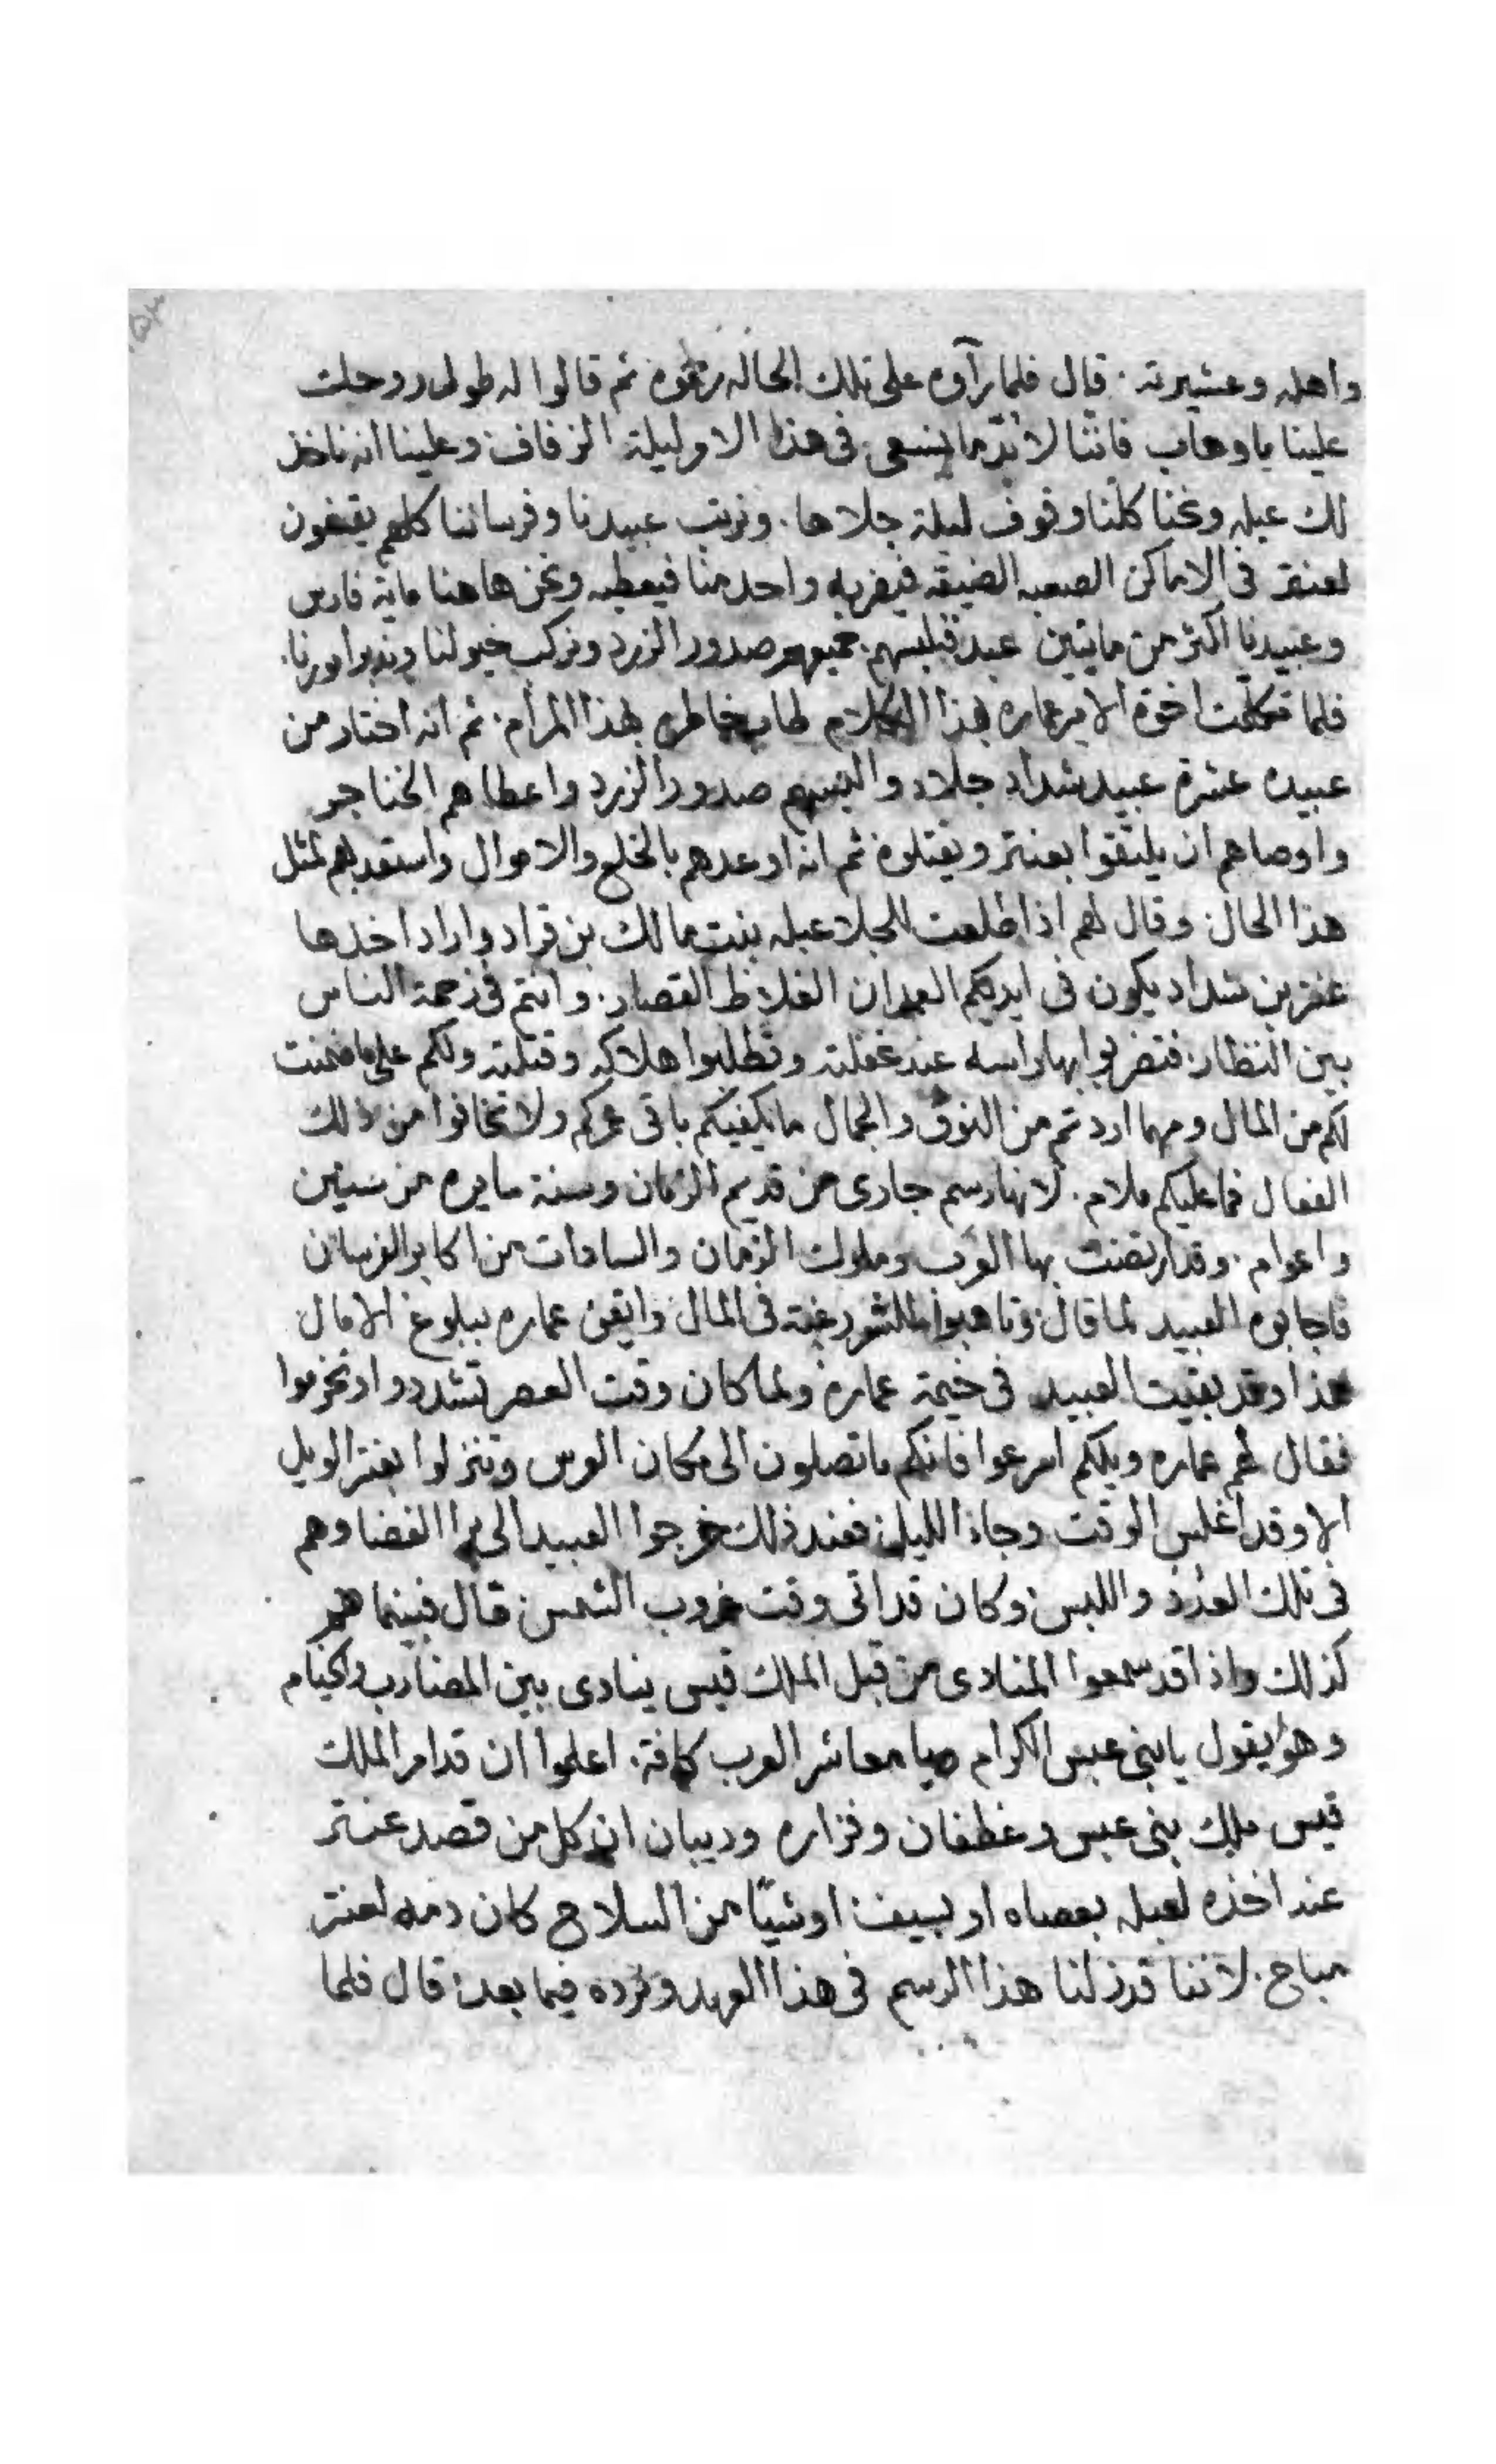 واهله وعشيرته . قال فلما رآوه على تلك الحاله ثم قالوا له طول روحلت
علينا ياوهاب فاننا لا بد ما ينسعى فى هذا الا وليلة الزفاف وعلينا انه ناخذ
لك عبله ونحنا كلنا وقوف ليلة جلاها . ونرتب عبيدنا وفرساننا كلهم يقفون
لعنتر فى الاماكن الصعبه الضيقه فيضربه واحد منا فيعطبه ونحن هاهنا ماية فارس
وعبيدنا اكثر من ماتين عبد فنلبسهم جميعهم صدور الزرد ونركب خيولنا وندبر امورنا .
فلما تكلمت اخوة الامير عماره بهذا الكلام طاب خاطره بهذا المرام . ثم انه اختار من
عبيده عشرة عبيد شداد جلاد والبسهم صدور الزرد واعطاهم الخناجر
واوصاهم ان يلتقوا بعنتر ويقتلوه ثم انه اوعدهم بالخلع والاموال واستعد بهم لمثل
هذا الحال . وقال لهم اذا طلعت للجلا عبله بنت مالك بن قراد واراد اخدها
عنتر بن شداد يكون فى ايديكم العيدان الغلاظ القصار . وانتم فى زحمة الناس
بين النظار . فتضربوا بها راسه عند غفلته وتطلبوا هلاكه وقتلته ولكم على ما ضمنت
لكم من المال ومهما اردتم من النوق والجمال ما يكفيكم باقى عمركم ولا تخافوا من ذلك
الفعال فما عليكم ملام . لانها رسم جارى من قديم الزمان وسنة سايره من سنين
واعوام . وقد ارتضت بها العرب وملوك الزمان والسادات من اكابر الفرسان
فاجابوه العبيد لما قال وتاهبوا للشر رغبة فى المال وايقن عماره ببلوغ الامال
هذا وقد بقيت العبيد فى خيمة عماره ولما كان وقت العصر تشددوا وتحزموا
فقال لهم عماره ويلكم اسرعوا فانكم ما تصلون الى مكان العرس وتنزلوا بعنتر الويل
الا وقد اغلس الوقت وجاز الليل فعند ذلك خرجوا العبيد الى برا الفضا وهم
فى تلك العدد واللبس وكان قد اتى وقت غروب الشمس . قال فبينما هم
كذلك واذا قد سمعوا المنادى من قبل الملك قيس ينادى بين المضارب والخيام
وهو يقول يا بنى عبس الكرام ويا معاشر العرب كافة . اعلموا ان قد امر الملك
قيس ملك بنى عبس وغطفان وفزاره وديبان ان كل من قصد عنتر
عند اخذه لعبله بعصاه او بسيف او شيًا من السلاح كان دمه لعنتر
مباح . لاننا قد زلنا هذا الرسم فى هذا العهد ونرده فيما بعد . قال فلما